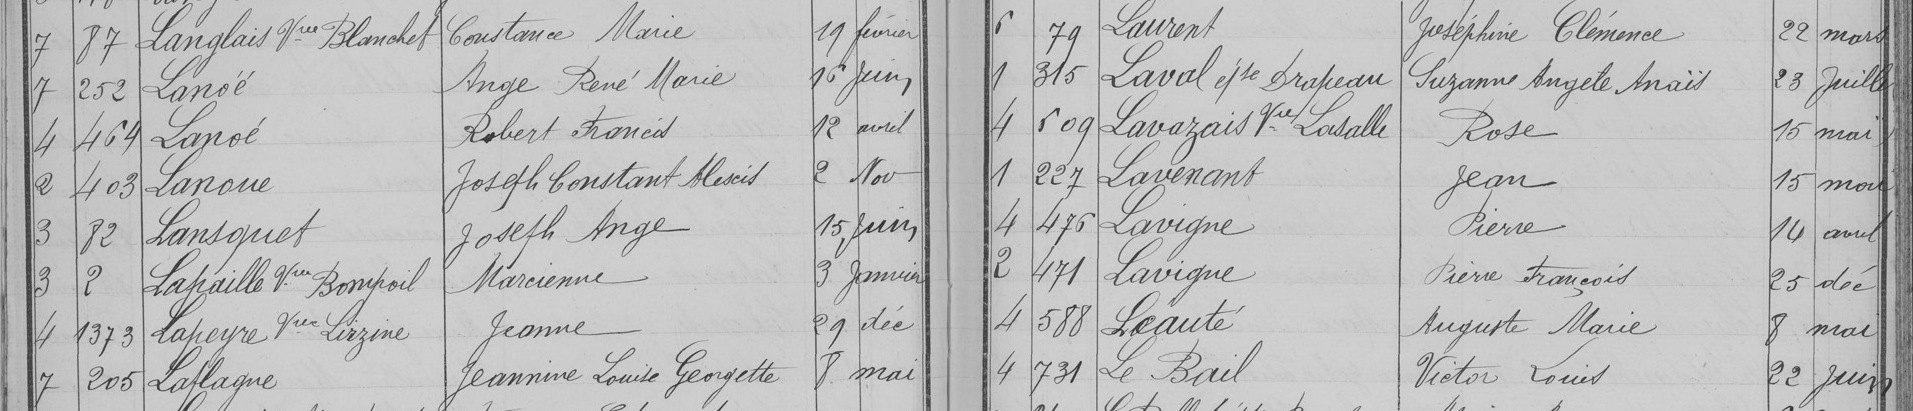 7 87 Langlais Vve Blanchet Constance Marie 19 février
7 252 Lanoë Ange René Marie 16 Juin
4 464 Lanoé Robert Francis 12 avril
2 403 Lanoue Joseph Constant Alexis 2 Nov
3 82 Lansquet Joseph Ange 15 Juin
3 2 Lapaille Vve Bompoil Marcienne 3 Janvier
4 1373 Lapeyre Vve Lizzine Jeanne 29 déc
7 205 Laplagne Jeannine Louise Georgette 8 mai
6 79 Laurent Joséphine Clémence 22 mars
1 315 Laval épse Drapeau Suzanne Angèle Anaïs 23 Juille
4 609 Lavazais Vve Lasalle Rose 15 mai
1 227 Lavenant Jean 15 mai
4 476 Lavigne Pierre 14 avril
2 471 Lavigne Pierre François 25 déc
4 588 Léauté Auguste Marie 8 mai
4 731 Le Bail Victor Louis 22 Juin